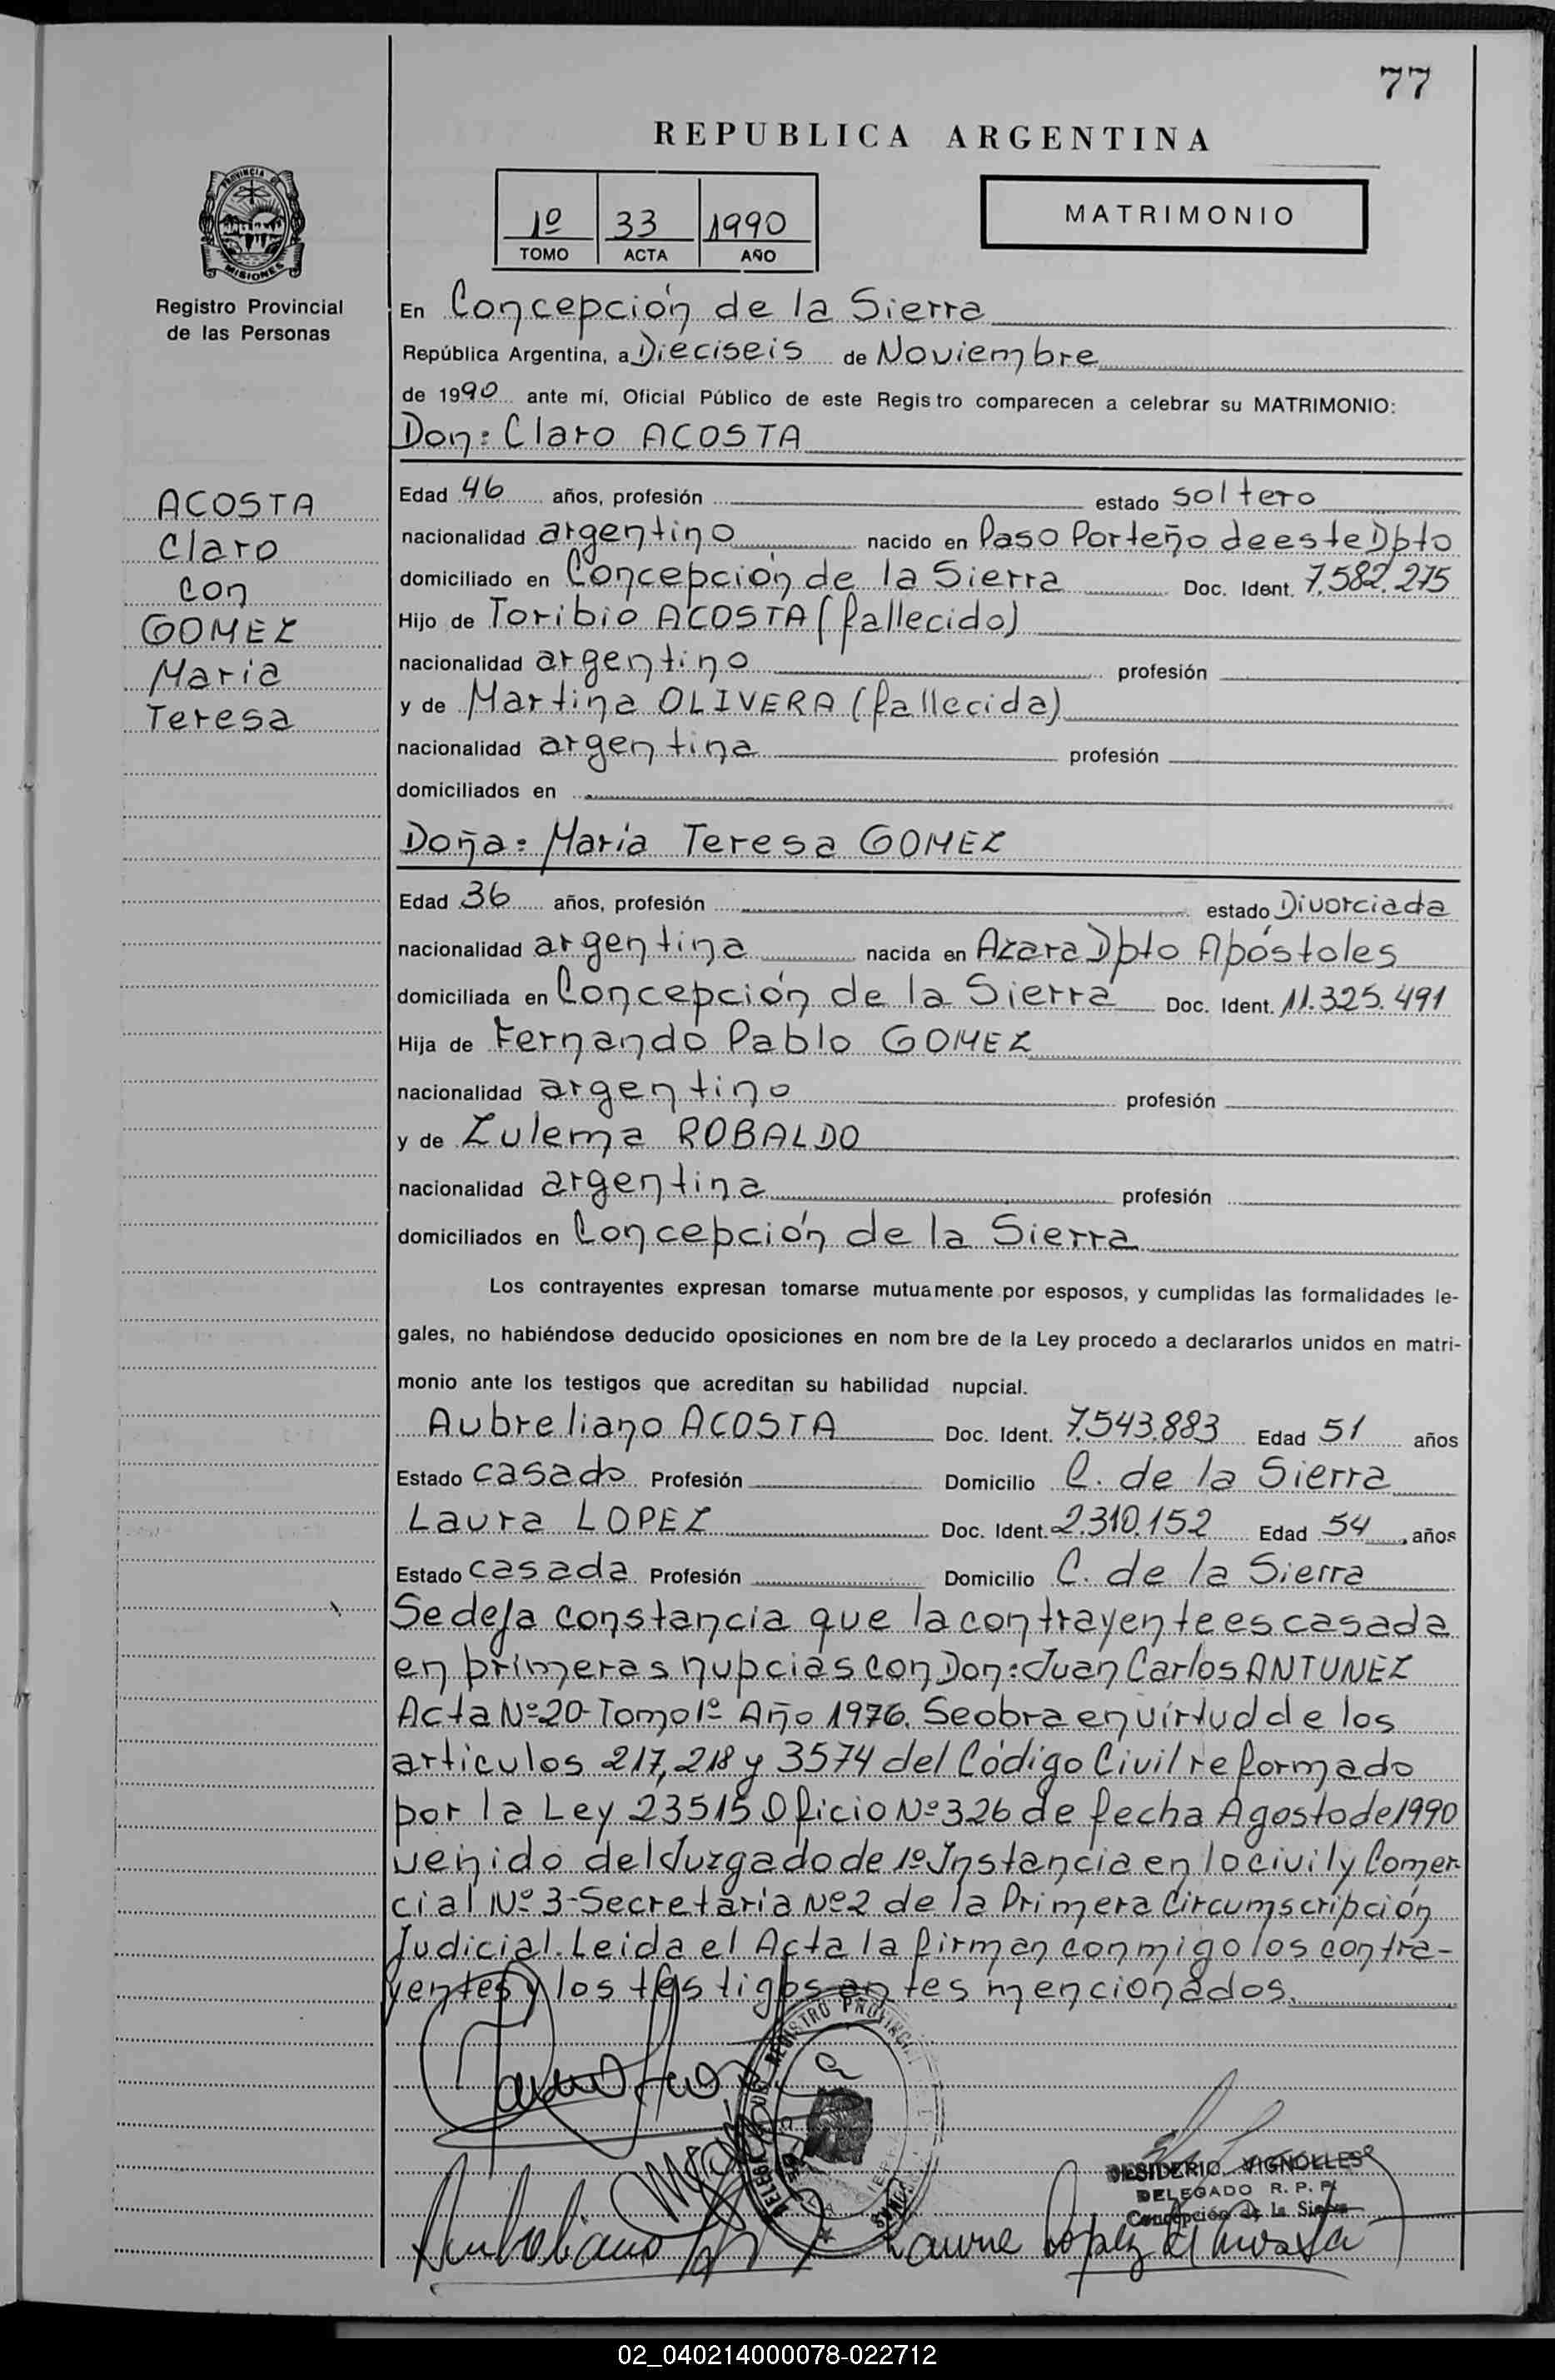 77
REPUBLICA ARGENTINA
PROVINCIA DE
MISIONES
Registro Provincial
de las Personas
1º 33 1990
TOMO ACTA AÑO
MATRIMONIO
En Concepción de la Sierra
República Argentina, a Dieciseis de Noviembre
de 1990 ante mí, Oficial Público de este Registro comparecen a celebrar su MATRIMONIO:
Don: Claro ACOSTA
ACOSTA
Claro
con
GOMEZ
Maria
Teresa
Edad 46 años, profesión estado soltero
nacionalidad argentino nacido en Paso Porteño de este Dpto
domiciliado en Concepción de la Sierra Doc. Ident. 7.582.275
Hijo de Toribio ACOSTA (fallecido)
nacionalidad argentino profesión
y de Martina OLIVERA (fallecida)
nacionalidad argentina profesión
domiciliados en
Doña: María Teresa GOMEZ
Edad 36 años, profesión estado Divorciada
nacionalidad argentina nacida en Azara Dpto Apóstoles
domiciliada en Concepción de la Sierra Doc. Ident. 11.325.491
Hija de Fernando Pablo GOMEZ
nacionalidad argentino profesión
y de Zulema ROBALDO
nacionalidad argentina profesión
domiciliados en Concepción de la Sierra
Los contrayentes expresan tomarse mutuamente por esposos, y cumplidas las formalidades le-
gales, no habiéndose deducido oposiciones en nombre de la Ley procedo a declararlos unidos en matri-
monio ante los testigos que acreditan su habilidad nupcial.
Aubreliano ACOSTA Doc. Ident. 7.543.883 Edad 51 años
Estado casado Profesión Domicilio C. de la Sierra
Laura LOPEZ Doc. Ident. 2.310.152 Edad 54 años
Estado casada Profesión Domicilio C. de la Sierra
Se deja constancia que la contrayente es casada
en primeras nupcias con Don: Juan Carlos ANTUNEZ
Acta Nº 20- Tomo 1º Año 1976. Se obra en virtud de los
articulos 217, 218 y 3574 del Código Civil reformado
por la Ley 23515 Oficio Nº 326 de fecha Agosto de 1990
venido del Juzgado de 1º Instancia en lo civil y Comer-
cial Nº 3-Secretaria Nº 2 de la Primera Circumscripción
Judicial. Leida el Acta la firman conmigo los contra-
yentes y los testigos antes mencionados.
REGISTRO PROVINCIAL
DESIDERIO VIGNOLLES
DELEGADO R. P. P.
Concepción de la Sierra
Laura Lopez de Acosta
02_040214000078-022712